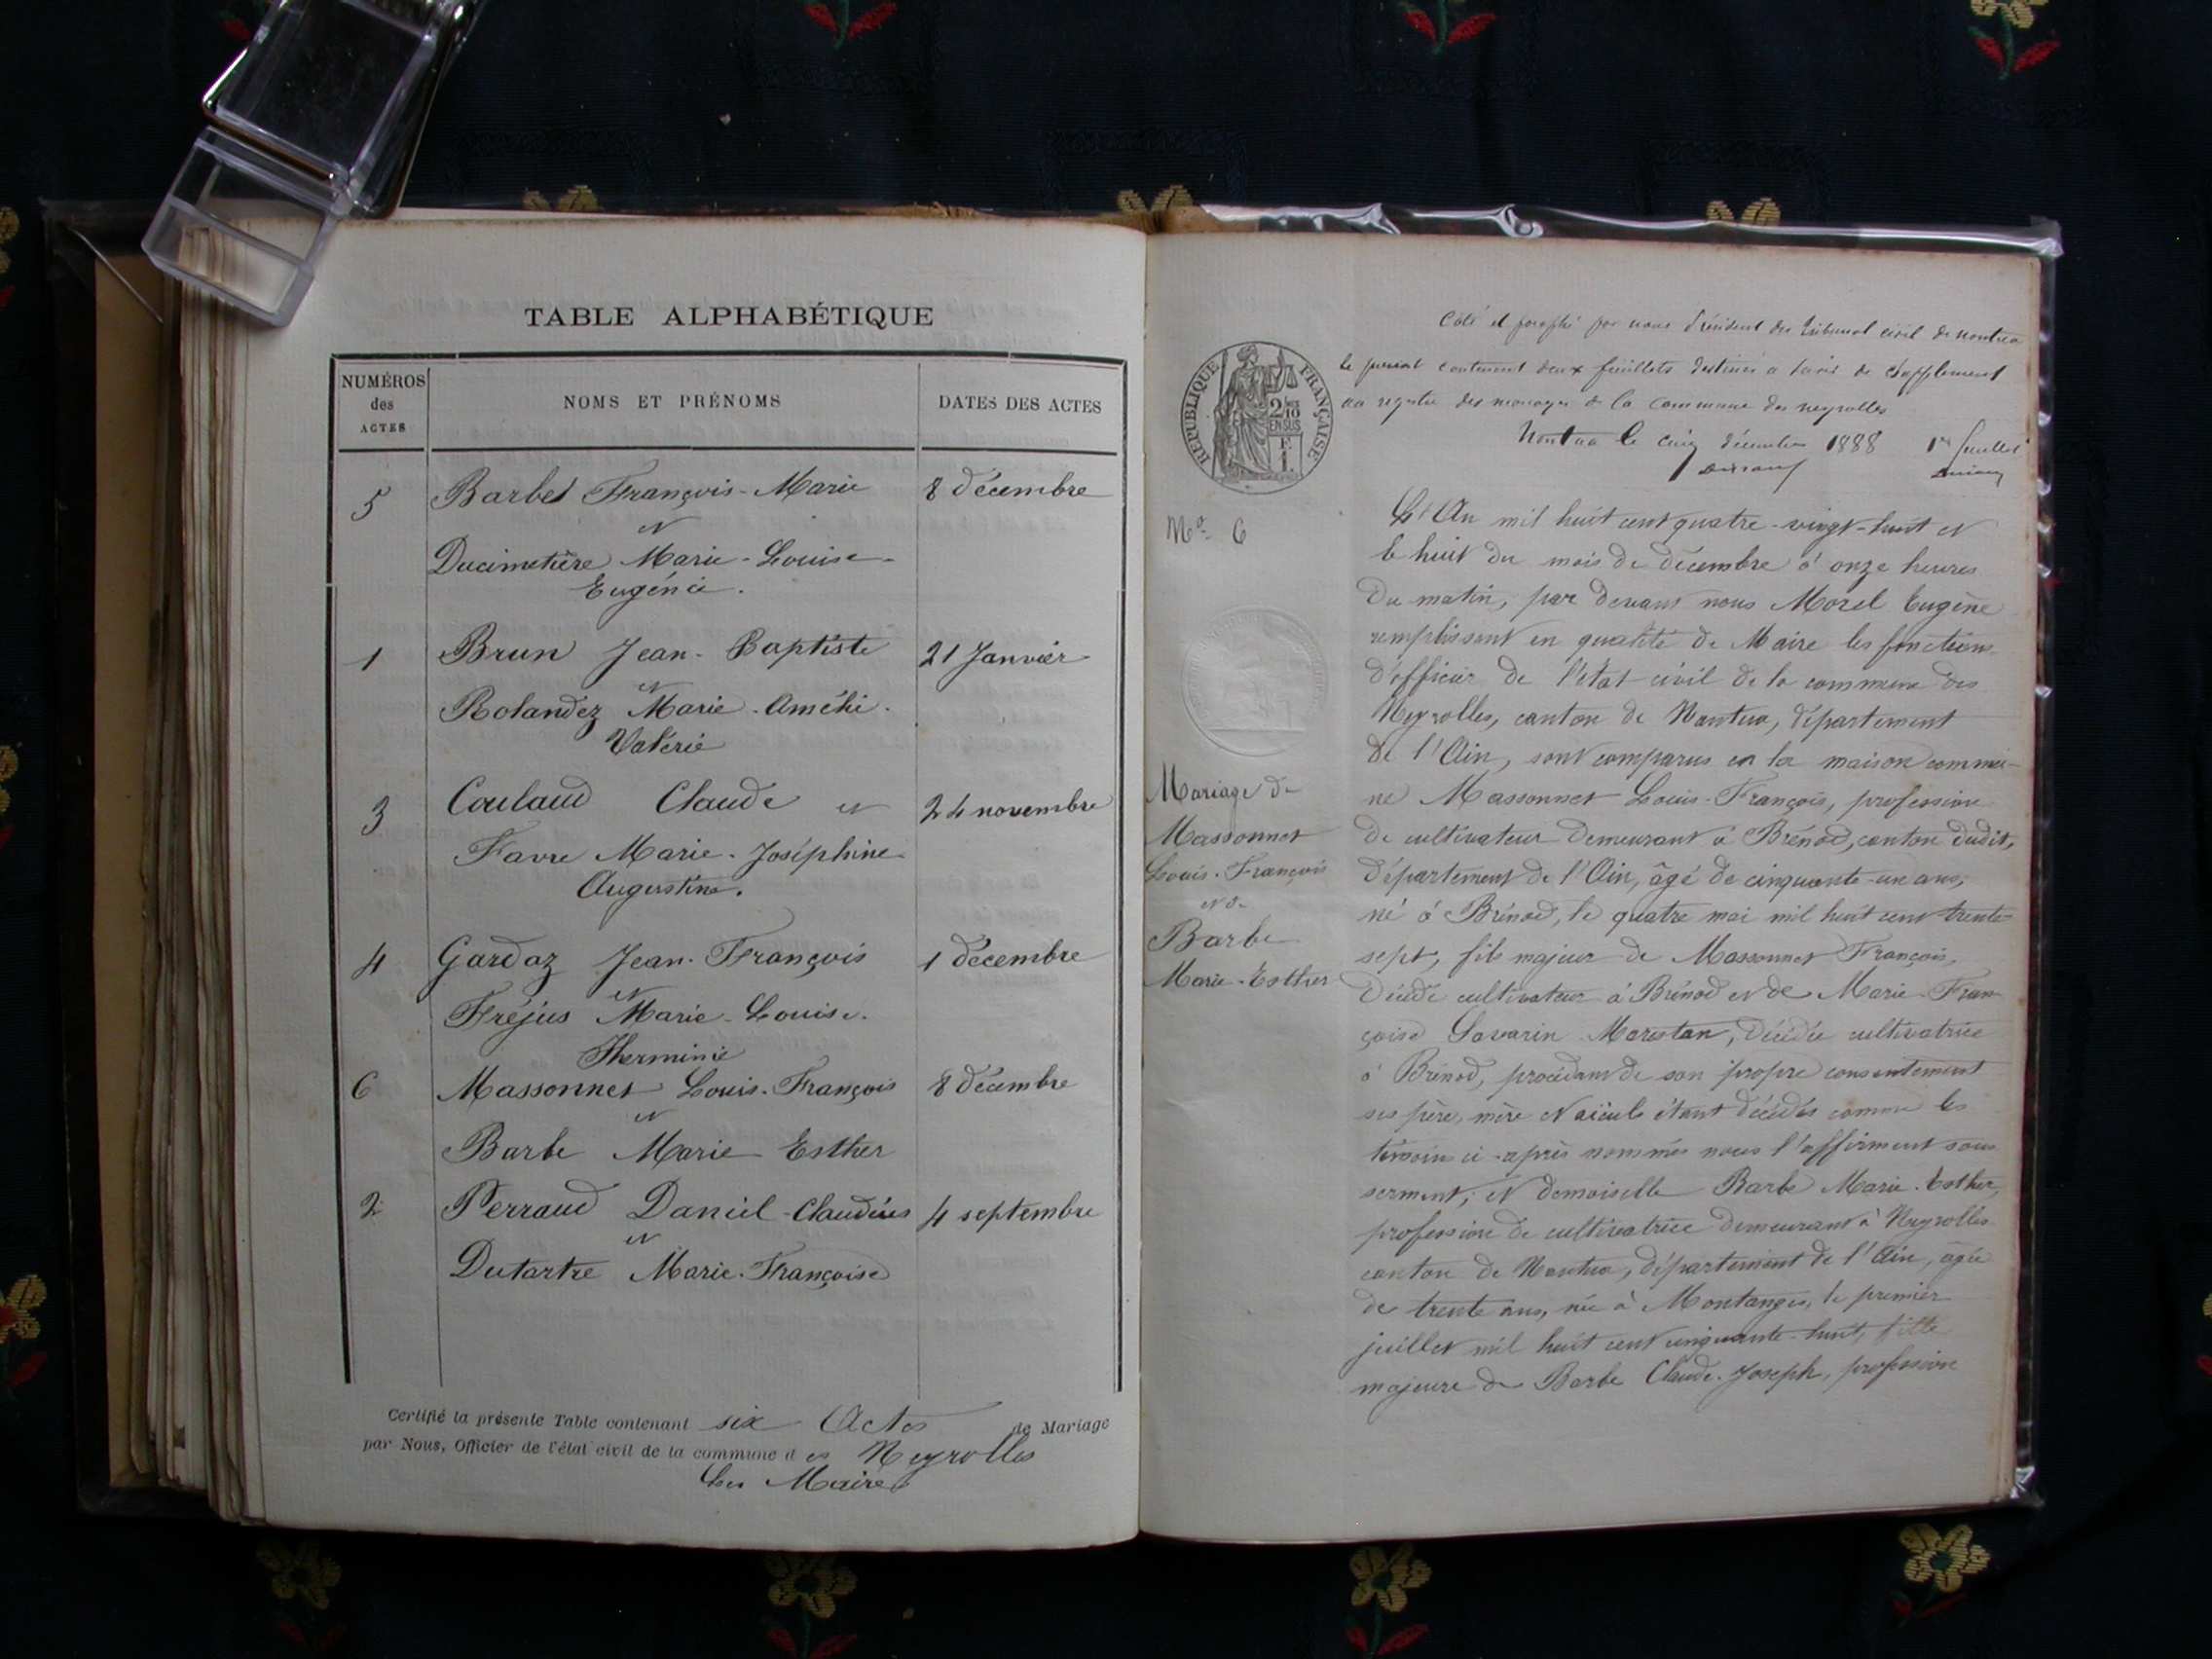 TABLE ALPHABÉTIQUE
NUMÉROS
des
ACTES
NOMS ET PRÉNOMS
DATES DES ACTES
5 Barbet François-Marie 8 décembre
et
Ducimetière Marie-Louise-
Eugénie.
1 Brun Jean-Baptiste 21 Janvier
et
Rolandez Marie-Amélie-
Valérie
3 Coulaud Claude et 24 novembre
Favre Marie-Joséphine
Augustine.
4 Gardaz Jean-François 1 décembre
et
Fréjus Marie-Louise.
Herminie
6 Massonnet Louis-François 8 décembre
et
Barbe Marie Esther
2 Perraud Daniel-Claudius 4 septembre
et
Dutartre Marie-Françoise
Certifié la présente Table contenant six Actes de Mariage
par Nous, Officier de l'état civil de la commune des Neyrolles
Maire
Coté et paraphé par nous Président du Tribunal civil de Nantua
le présent contenant deux feuillets destinés a servir de supplement
au registre des mariages de la Commune des neyrolles
Nantua le cinq décembre 1888 1er feuillet
RÉPUBLIQUE FRANÇAISE
2/10
EN SUS
F.
1.
No 6
L'An mil huit cent quatre-vingt-huit et
le huit du mois de décembre à onze heures
du matin, par devant nous Morel Eugène
remplissant en qualité de Maire les fonctions
d'officier de l'état civil de la commune des
Neyrolles, canton de Nantua, département
de l'Ain, sont comparus en la maison commu-
Mariage de
Massonnet
Louis-François
et de
Barbe
Marie-Esther
ne Massonnet Louis-François, profession
de cultivateur demeurant à Brénod, canton dudit,
département de l'Ain, âgé de cinquante-un ans,
né à Brénod, le quatre mai mil huit cent trente-
sept, fils majeur de Massonnet François,
décédé cultivateur à Brénod et de Marie-Fran-
çoise Savarin Marestan, décédée cultivatrice
à Brénod, procédant de son propre consentement
ses père, mère et aïeuls étant décédés comme les
témoins ci-après nommés nous l'affirment sous
serment; et demoiselle Barbe Marie-Esther,
profession de cultivatrice demeurant à Neyrolles
canton de Nantua, département de l'Ain, agée
de trente ans, née à Montanges, le premier
juillet mil huit cent cinquante-huit, fille
majeure de Barbe Claude-Joseph, profession